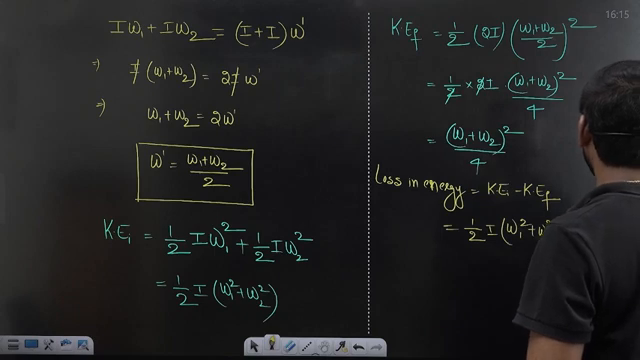 Iω₁ + Iω₂ = (I + I) ω'
⇒ I (ω₁+ω₂) = 2I ω'
⇒ ω₁ + ω₂ = 2ω'
ω' = (ω₁+ω₂)/2
K.Eᵢ = 1/2 Iω₁² + 1/2 Iω₂²
= 1/2 I (ω₁² + ω₂²)
16:15
K.E_f = 1/2 (2I) ((ω₁+ω₂)/2)²
= 1/2 × 2I · (ω₁+ω₂)²/4
= (ω₁+ω₂)²/4
Loss in energy = K.Eᵢ - K.E_f
= 1/2 I (ω₁² + ω